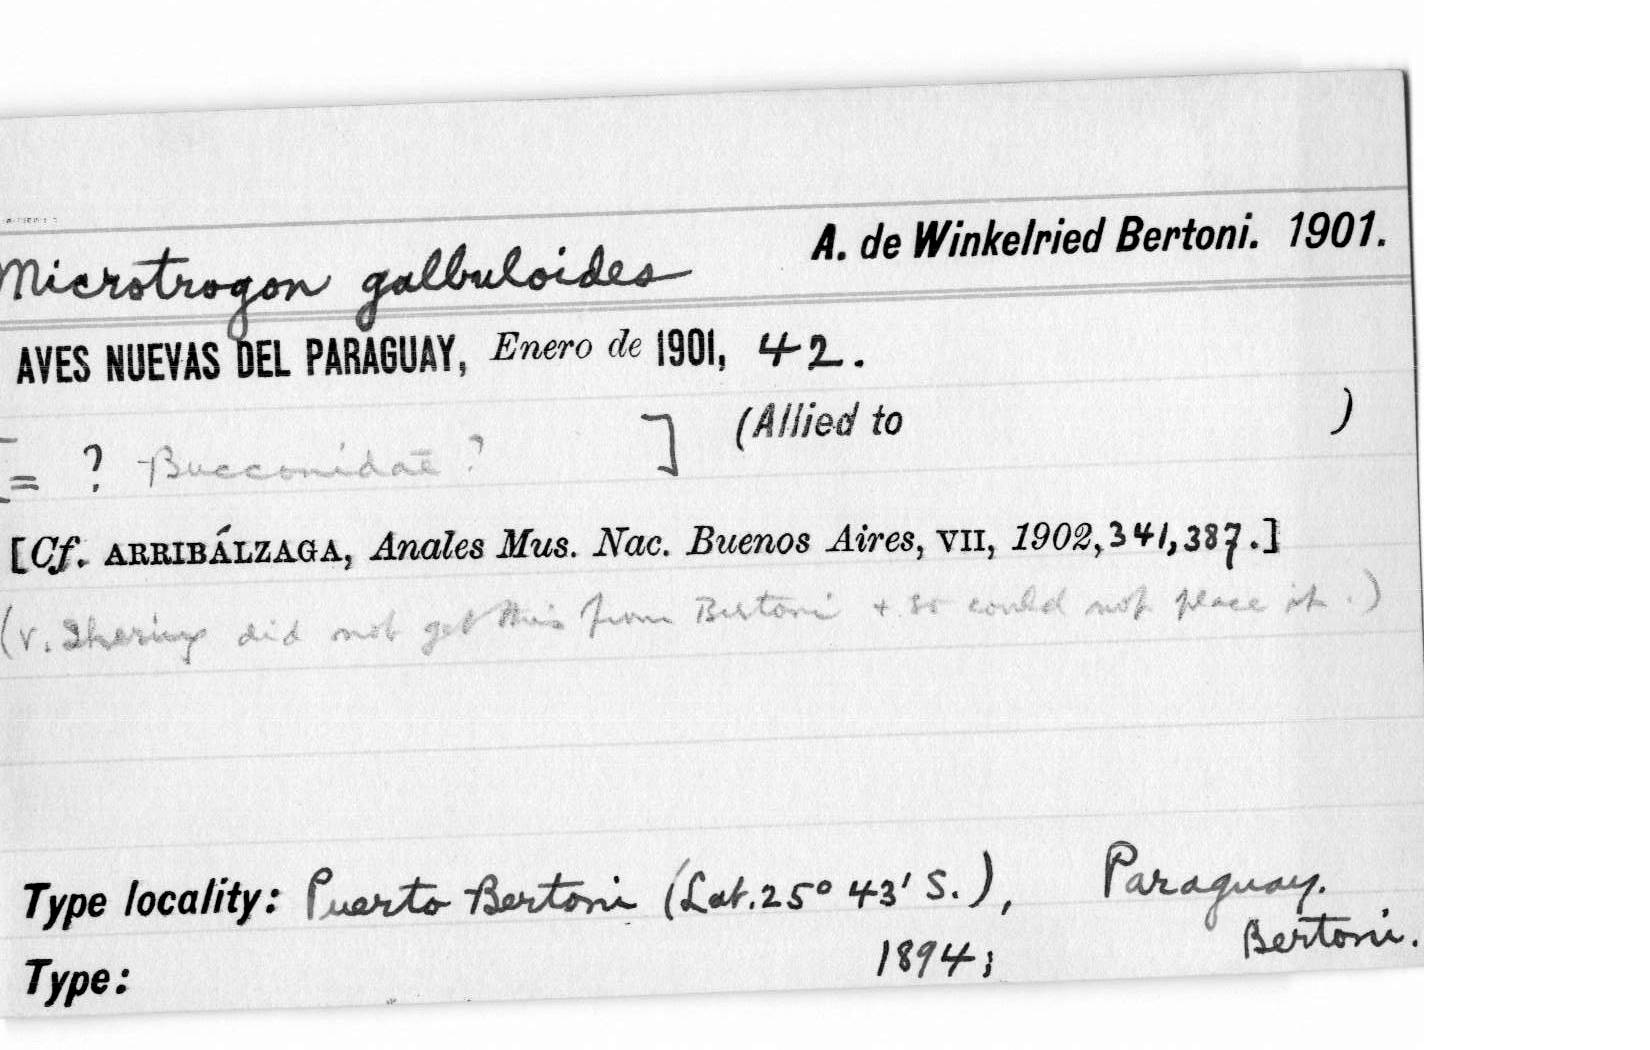 A. de Winkelried Bertoni. 1901.
Microtrogon galbuloides
AVES NUEVAS DEL PARAGUAY, Enero de 1901, 42.
[= ? Bucconidae ? ] (Allied to )
[Cf. ARRIBÁLZAGA, Anales Mus. Nac. Buenos Aires, VII, 1902, 341, 387.]
(v. Ihering did not get this from Bertoni & so could not place it.)
Type locality: Puerto Bertoni (Lat. 25° 43' S.), Paraguay.
Type: 1894; Bertoni.